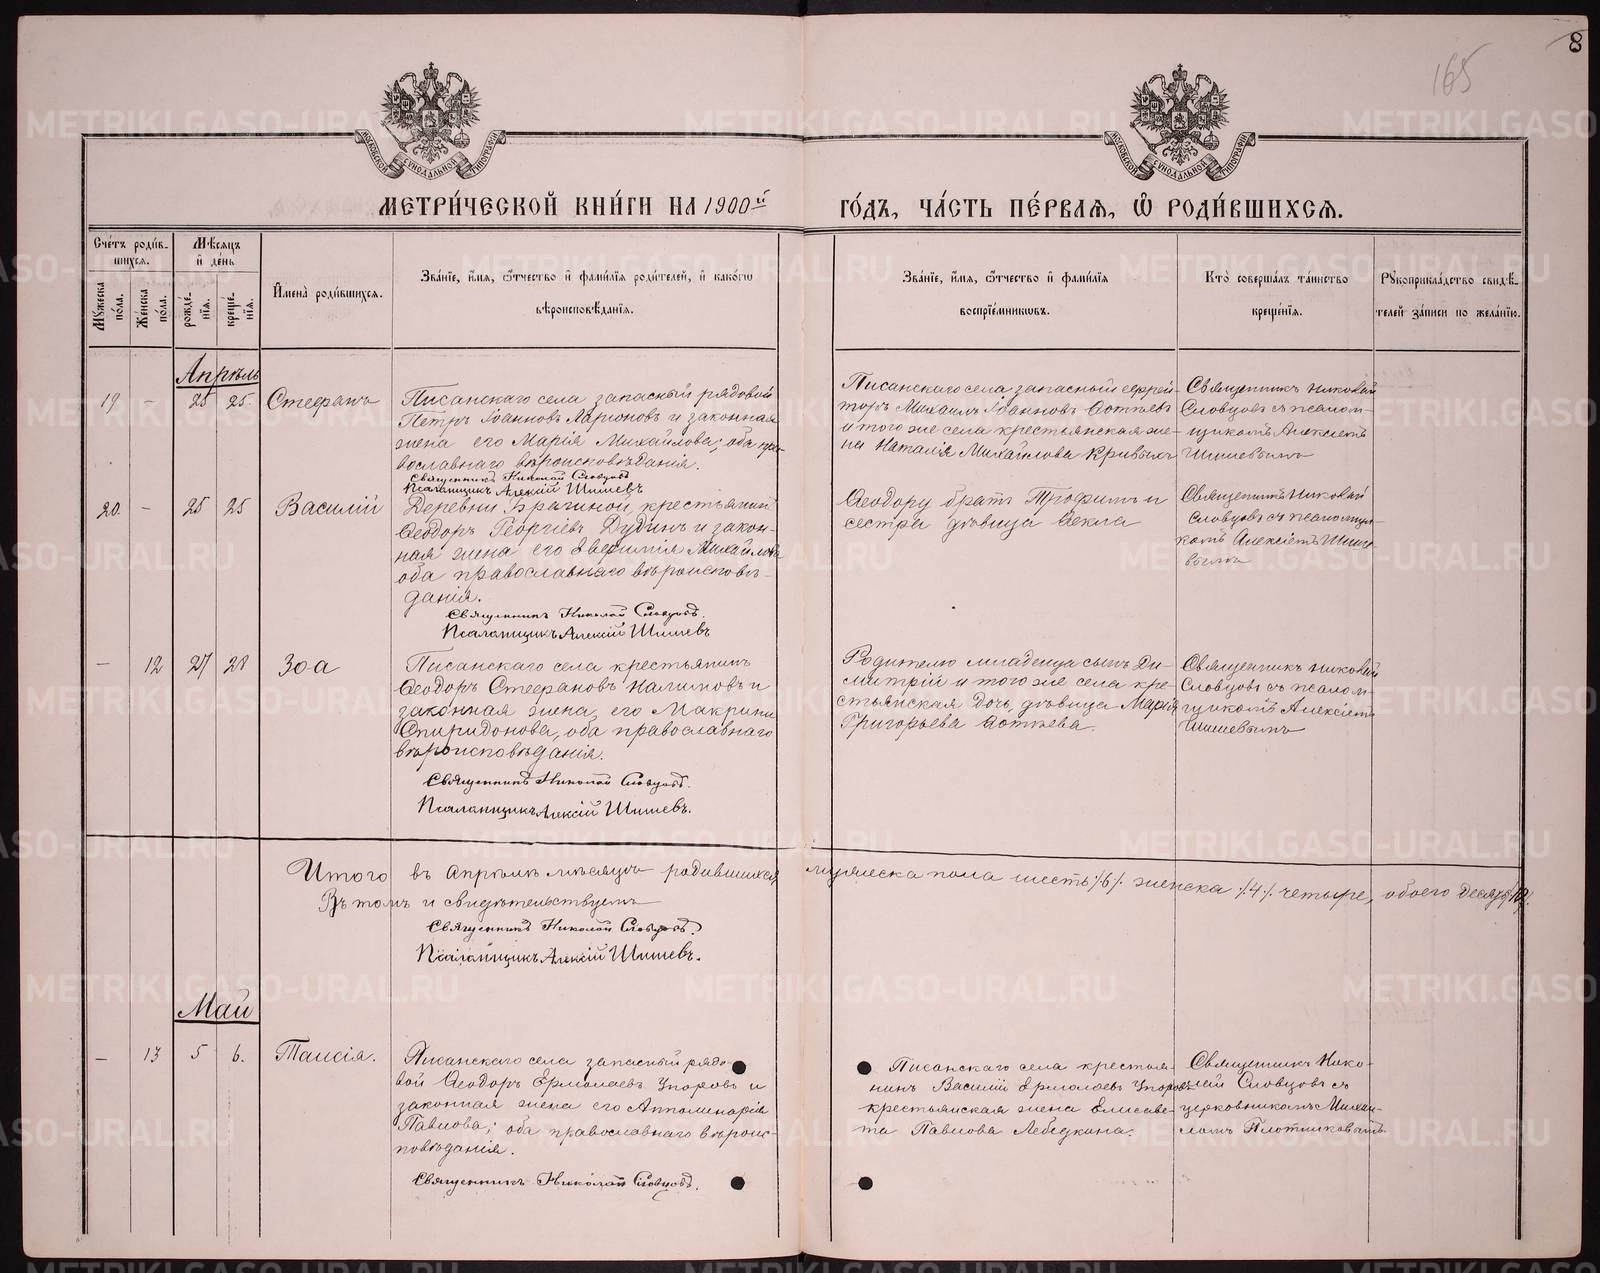 8
165
МОСКОВСКОЙ СѴНОДАЛЬНОЙ ТИПОГРАФІИ
МОСКОВСКОЙ СѴНОДАЛЬНОЙ ТИПОГРАФІИ
МЕТРИ́ЧЕСКОЙ КНИ́ГИ НА 1900й
ГО́ДЪ, ЧА́СТЬ ПЕ́РВАЯ, Ѡ РОДИ́ВШИХСЯ.
Сче́тъ роди́в-
шихся.
Мꙋжеска по́ла.
Же́нска по́ла.
Мѣ́сяцъ
и де́нь
рожде́нїя.
креще́нїя.
Имена̀ роди́вшихся.
Зва́нїе, и́мя, ѻ́тчество и фами́лїя роди́телей, и како́гѡ
вѣроисповѣ́данїя.
Зва́нїе, и́мя, ѻ́тчество и фами́лїя
воспрїе́мникѡвъ.
Кто̀ соверша́лъ та́инство
креще́нїя.
Рꙋкоприкла́дство свидѣ́-
телей за́писи по жела́нїю.
Апрѣль
19 - 25 25 Стефанъ
Писанскаго села запасный рядовой
Петръ Іоанновъ Ларіоновъ и законная
жена его Марія Михайлова; оба пра-
вославнаго вѣроисповѣданія.
Священникъ Николай Словцовъ
Псаломщикъ Алексій Шишевъ
Писанскаго села запасный ефрей-
торъ Михаилъ Іоанновъ
и того же села крестьянская же-
на Наталія Михайлова Кривыхъ
Священникъ Николай
Словцовъ съ псалом-
щикомъ Алексіемъ
Шишевымъ
20 - 25 25 Василій
Деревни Брагиной, крестьянин
Ѳеодоръ Георгіевъ Дудинъ и закон-
ная жена его Евфимія Михайлова
оба православнаго вѣроисповѣ-
данія.
Священникъ Николай Словцовъ.
Псаломщикъ Алексій Шишевъ
Ѳеодору братъ Трофимъ и
сестра дѣвица Ѳекла
Священникъ Николай
Словцовъ съ псаломщи-
комъ Алексіемъ Шише-
вымъ
- 12 27 28 Зоа
Писанскаго села крестьянинъ
Ѳеодоръ Стефановъ Налимовъ и
законная жена его Макрина
Спиридонова, оба православнаго
вѣроисповѣданія.
Священникъ Николай Словцовъ.
Псаломщикъ Алексій Шишевъ.
Родителю младенца сынъ Ди-
митрій и того же села кре-
стьянская дочь, дѣвица Марія
Григорьева
Священникъ Николай
Словцовъ съ псалом-
щикомъ Алексіемъ
Шишевымъ
Итого въ апрѣлѣ мѣсяцѣ родившихся мужеска пола шесть /6/. женска /4/. четыре, обоего десять /10/.
Въ томъ и свидѣтельствуемъ
Священникъ Николай Словцовъ.
Псаломщикъ Алексій Шишевъ.
Май
- 13 5 6. Таисія.
Писанскаго села запасный рядо-
вой Ѳеодоръ Ермолаевъ Упоровъ и
законная жена его Апполинарія
Павлова; оба православнаго вѣроис-
повѣданія.
Священникъ Николай Словцовъ.
Писанскаго села крестья-
нинъ Василій Ермолаевъ Упоровъ
крестьянская жена Елисаве-
та Павлова Лебедкина.
Священникъ Нико-
лай Словцовъ съ
церковникомъ Михаи-
ломъ Плотниковымъ
METRIKI.GASO-URAL.RU